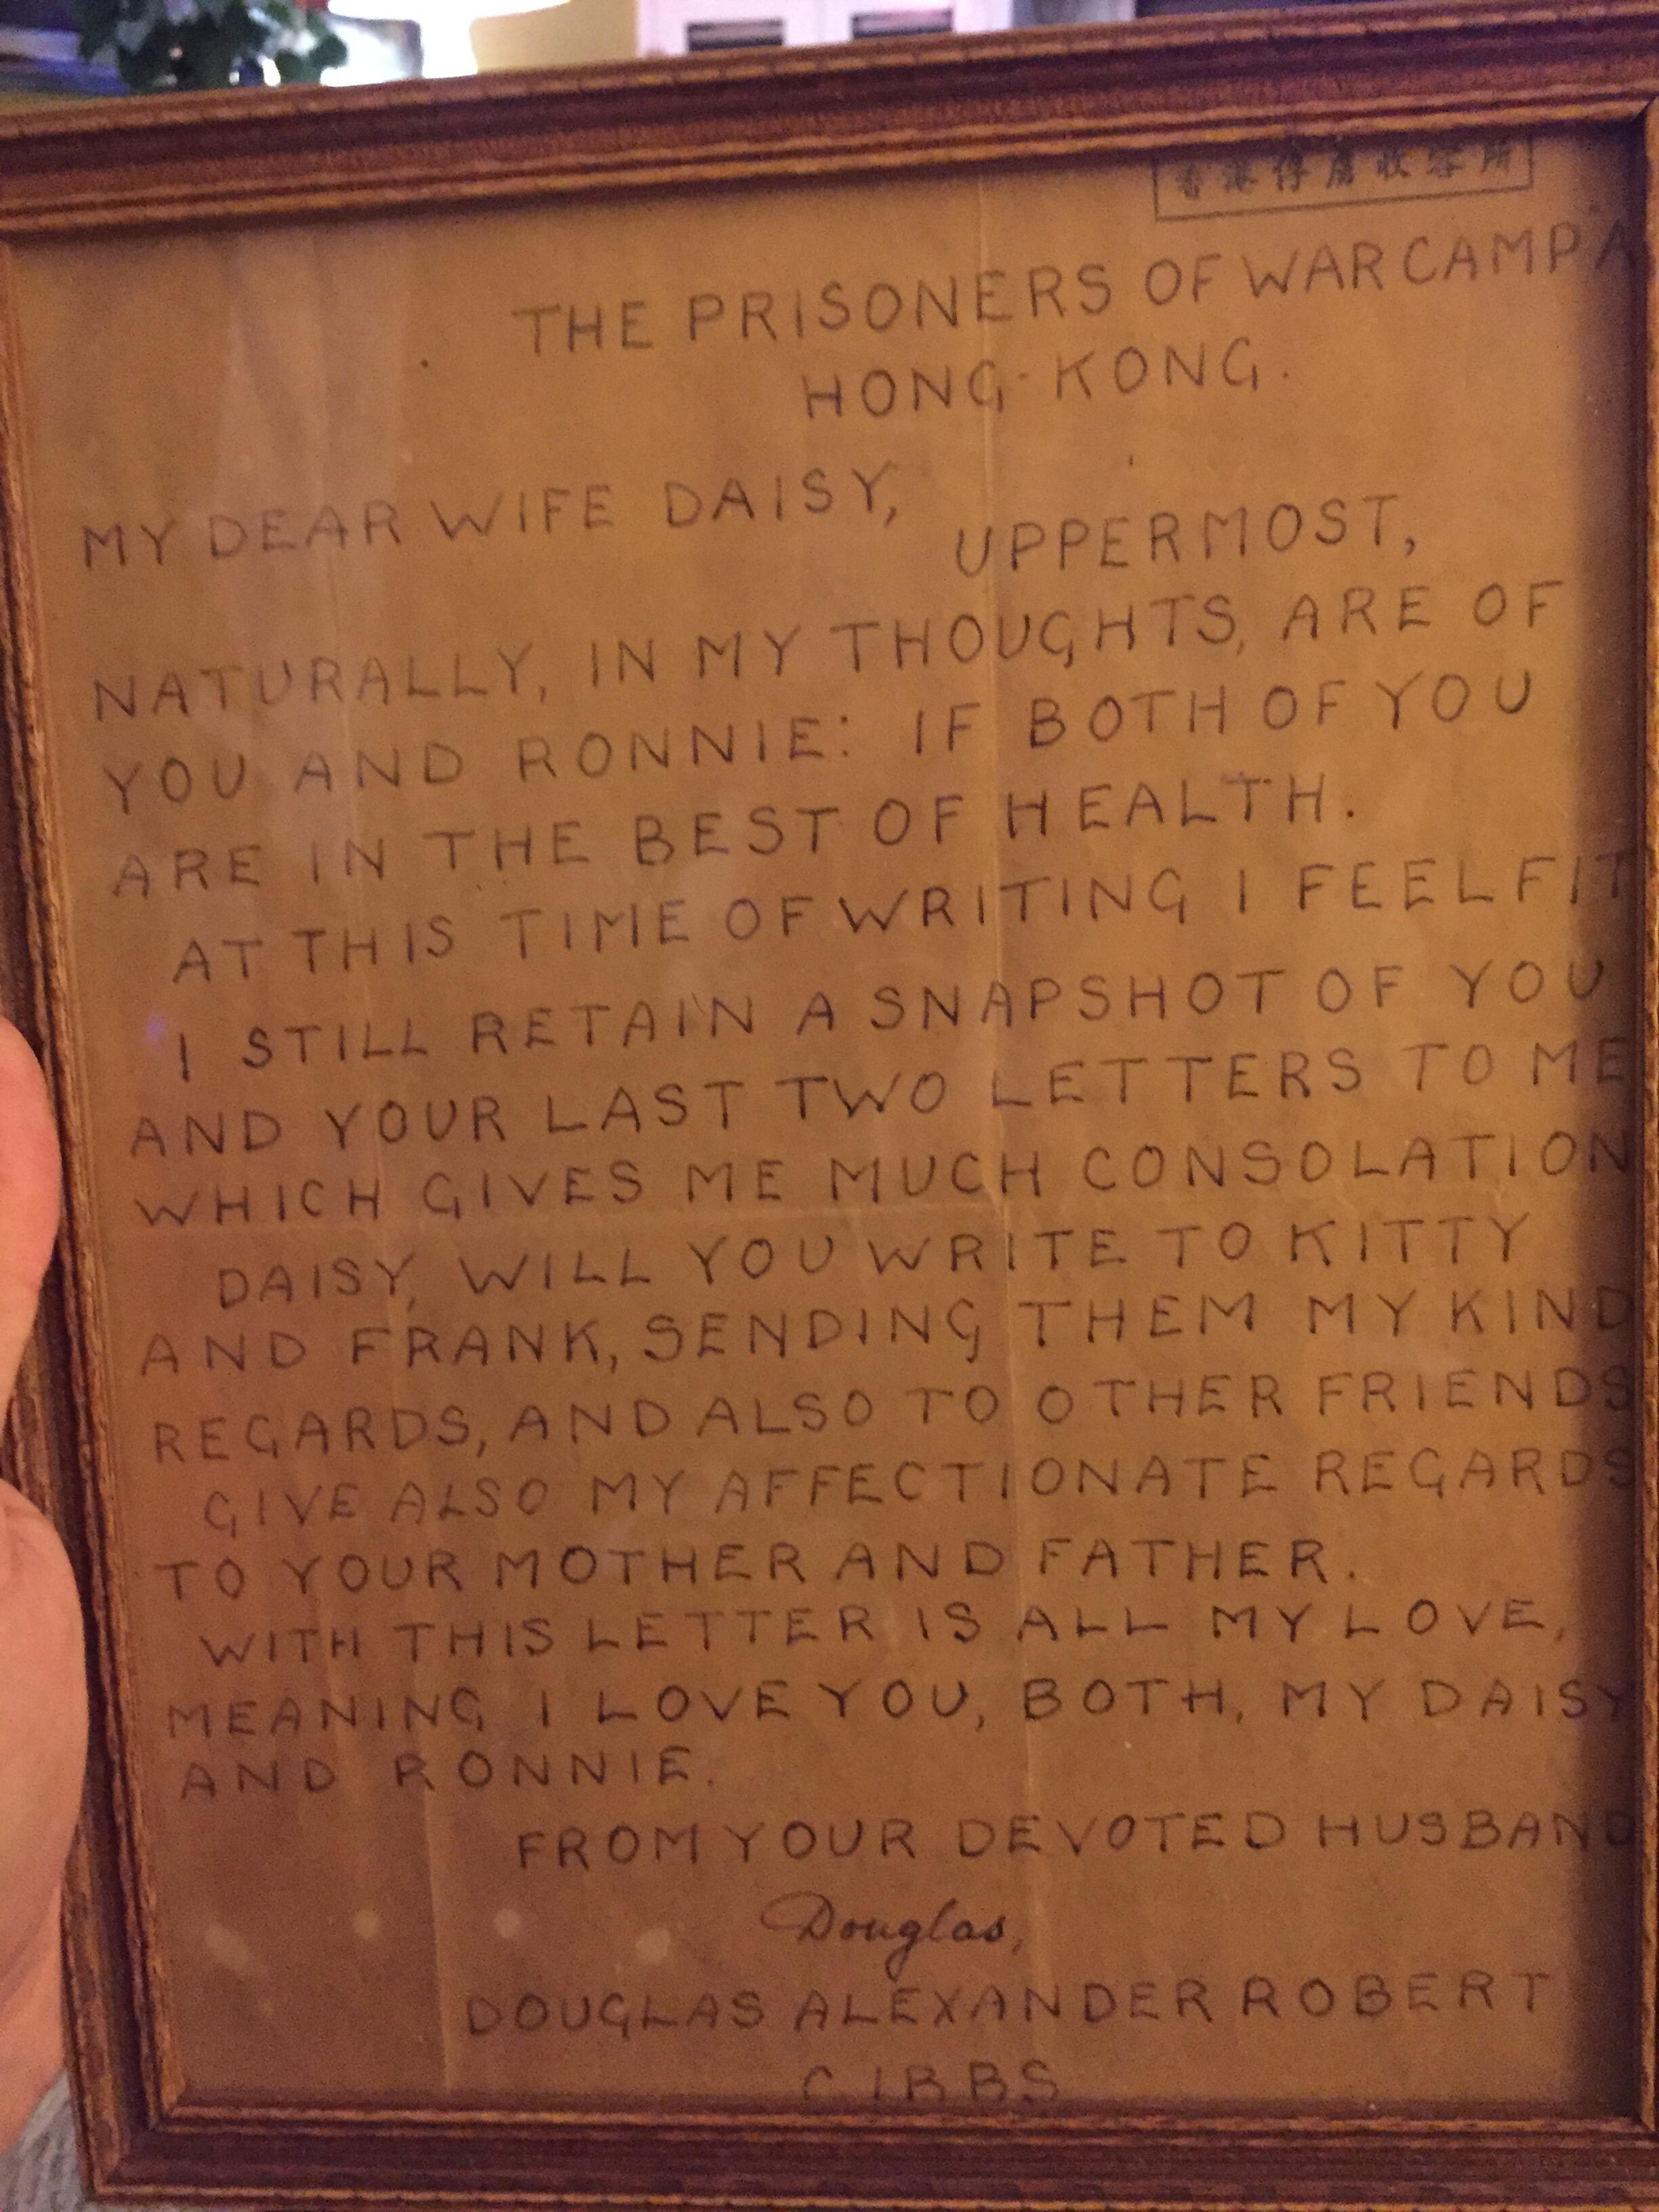 香港俘虜收容所
THE PRISONERS OF WAR CAMP A
HONG-KONG.
MY DEAR WIFE DAISY,
UPPERMOST,
NATURALLY, IN MY THOUGHTS, ARE OF
YOU AND RONNIE: IF BOTH OF YOU
ARE IN THE BEST OF HEALTH.
AT THIS TIME OF WRITING I FEEL FIT
I STILL RETAIN A SNAPSHOT OF YOU
AND YOUR LAST TWO LETTERS TO ME
WHICH GIVES ME MUCH CONSOLATION
DAISY, WILL YOU WRITE TO KITTY
AND FRANK, SENDING THEM MY KIND
REGARDS, AND ALSO TO OTHER FRIENDS
GIVE ALSO MY AFFECTIONATE REGARDS
TO YOUR MOTHER AND FATHER.
WITH THIS LETTER IS ALL MY LOVE,
MEANING I LOVE YOU, BOTH, MY DAISY
AND RONNIE.
FROM YOUR DEVOTED HUSBAND
Douglas,
DOUGLAS ALEXANDER ROBERT
GIBBS